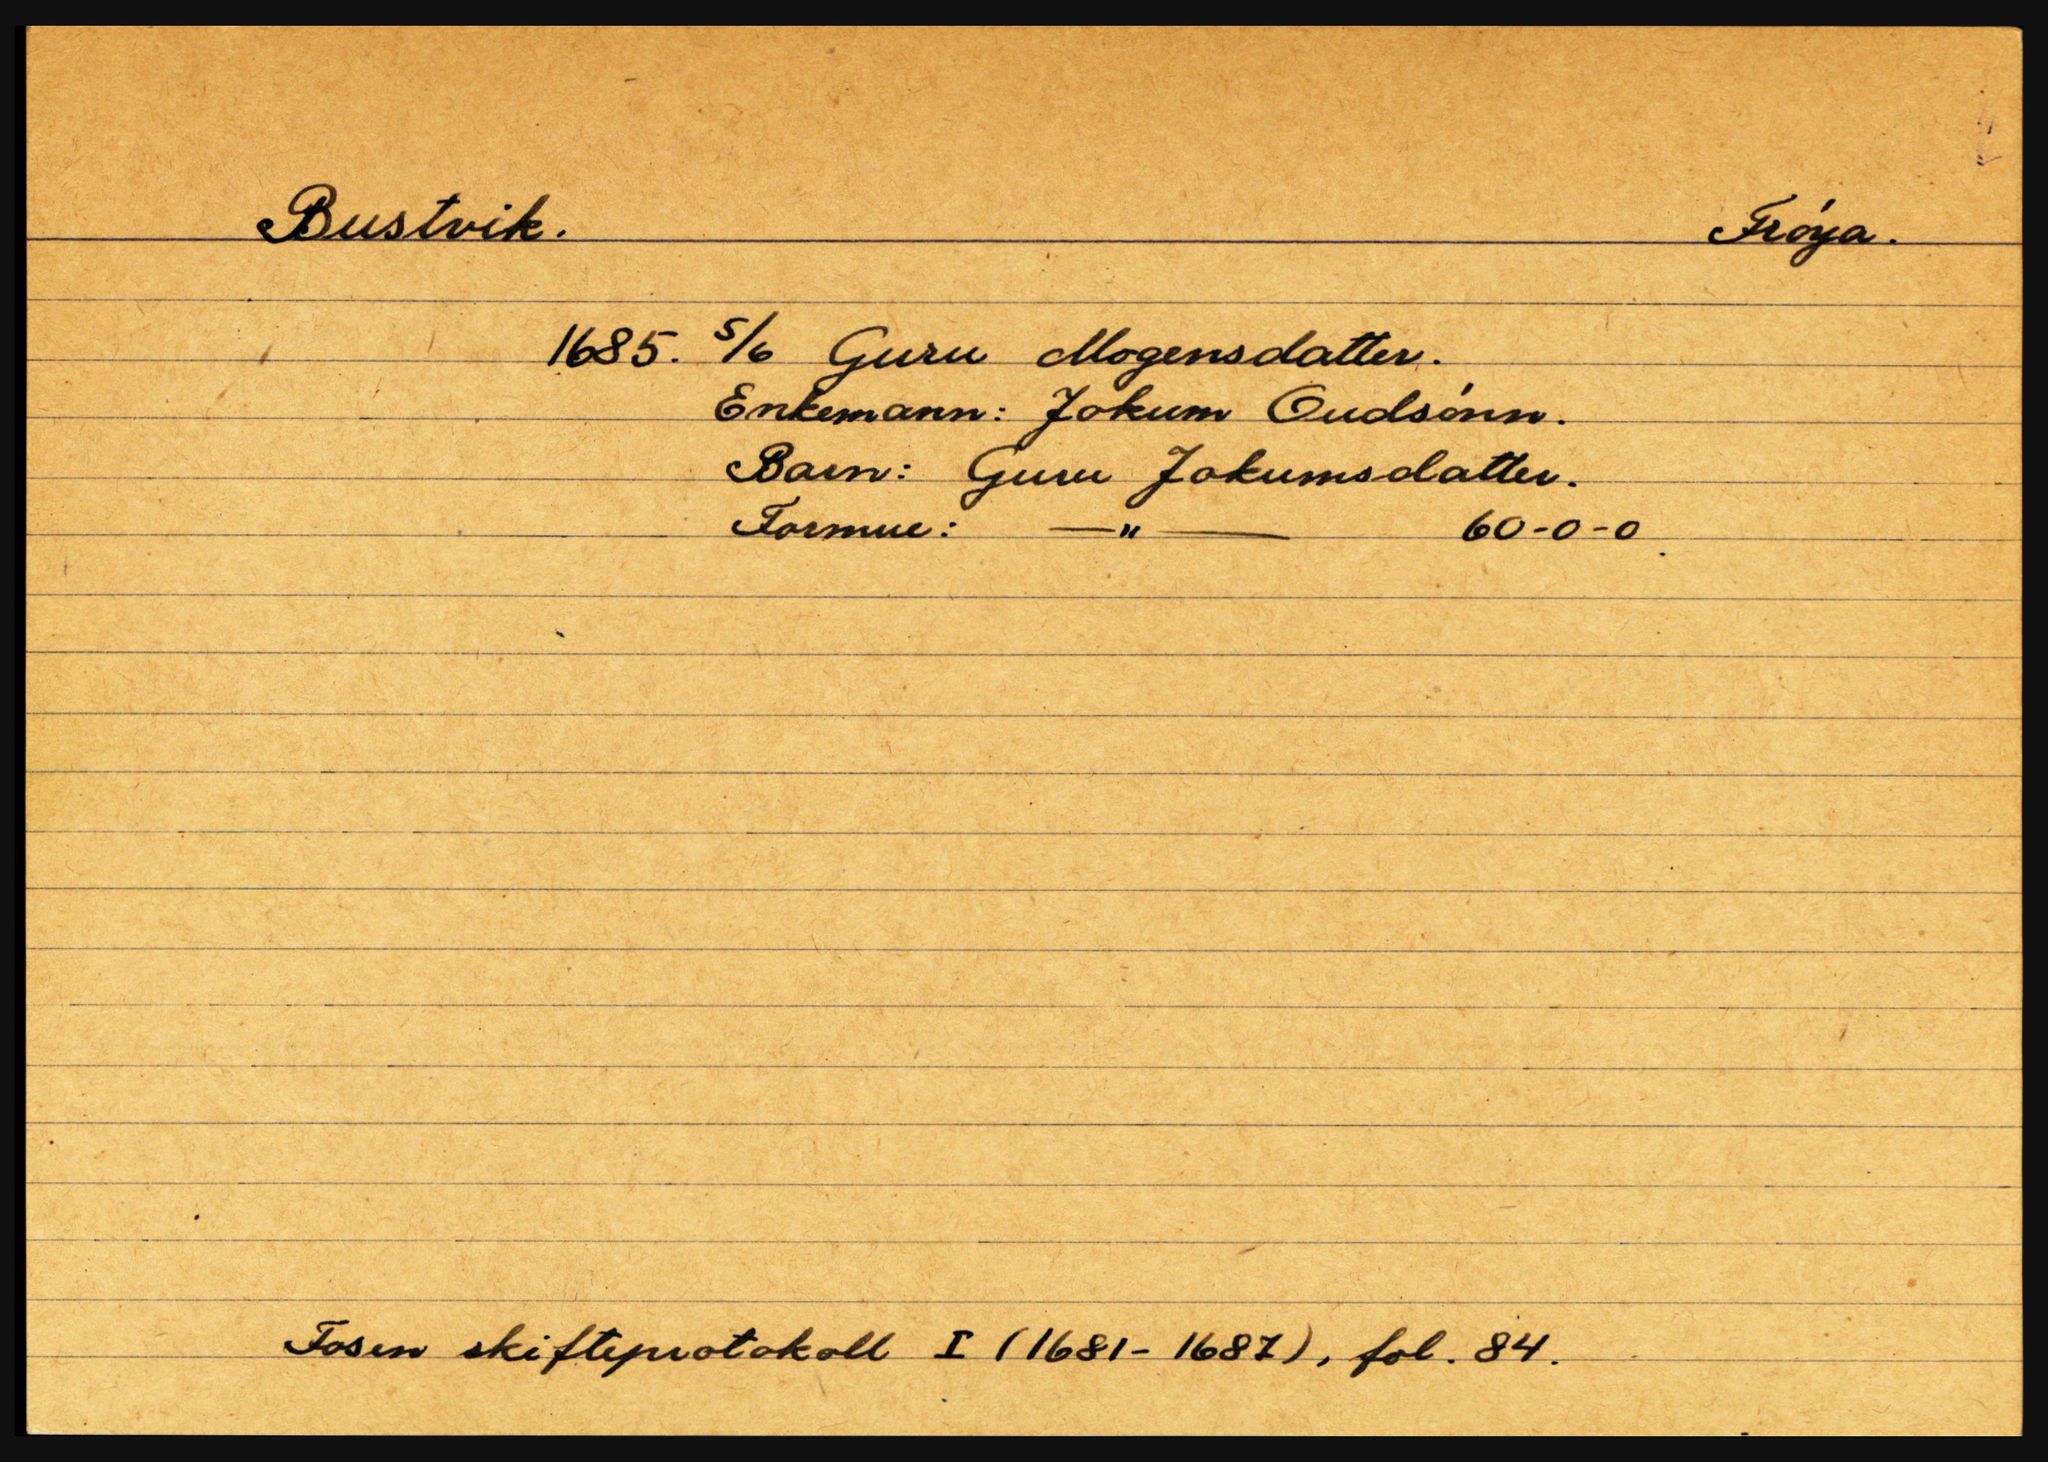 Bustvik. Frøya.
1685. 5/6 Guru Mogensdatter.
Enkemann: Jokum Oudsønn.
Barn: Guru Jokumsdatter.
Formue: —"— 60-0-0
Fosen skifteprotokoll I (1681-1687), fol. 84.